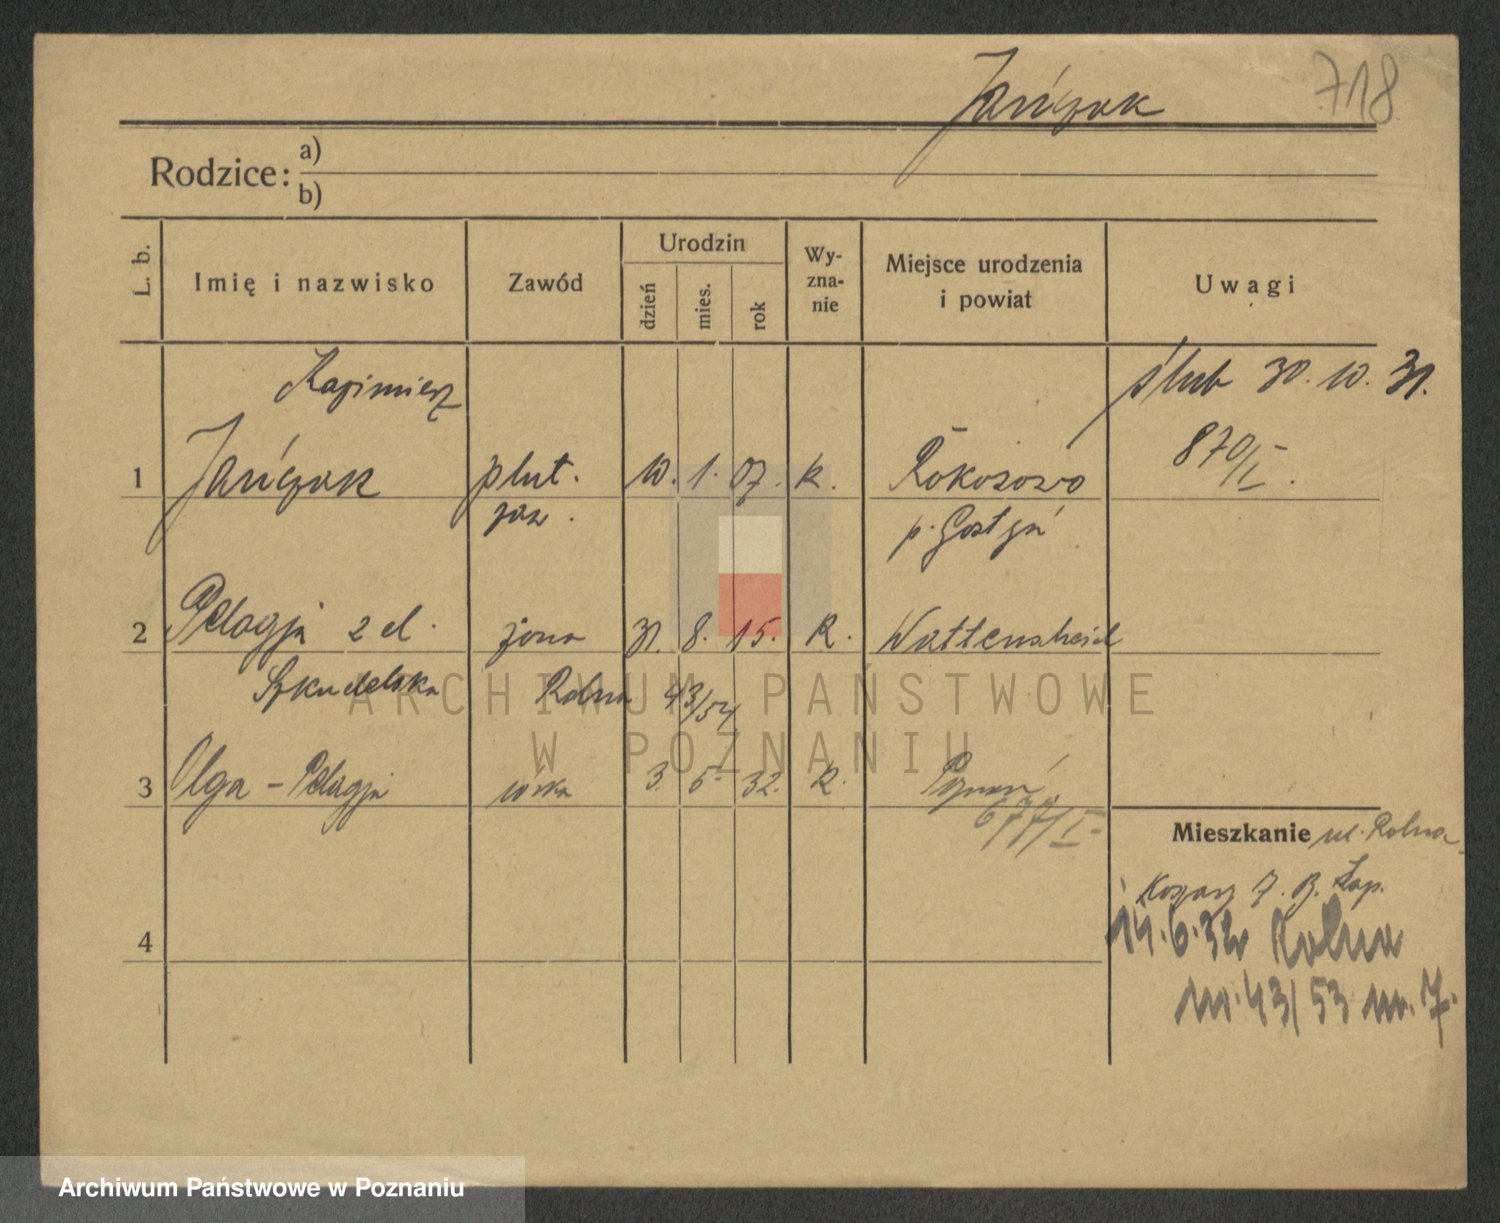 Jańczak 718
Rodzice: a)
b)
L. b. Imię i nazwisko Zawód Urodzin dzień mies. rok Wy-zna-nie Miejsce urodzenia i powiat Uwagi
Kazimierz ślub 30. 10. 31.
1 Jańczak plut. 10. 1. 07. k. Rokosowo 870/I.
zaw. p. Gostyń
2 Pelagja z d. żona 31. 8. 15. k. Wattenscheid
Szkudelska Rolna 43/54
3 Olga - Pelagja córka 3. 5. 32. k. Poznań
677/I
Mieszkanie ul. Rolna
Koszary 7. B. Sap.
4 14.6.32 Rolna
nr. 43/53 m. 7.
ARCHIWUM PAŃSTWOWE
W POZNANIU
Archiwum Państwowe w Poznaniu